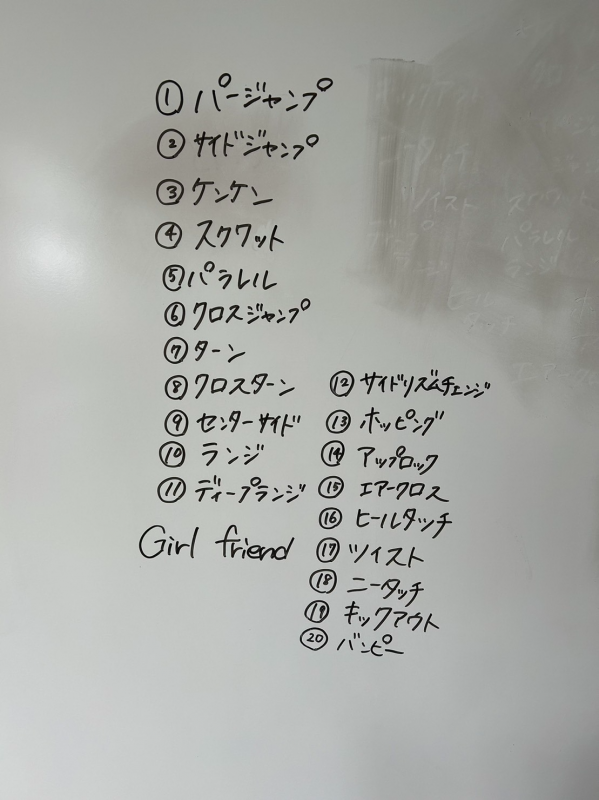 ① パージャンプ
② サイドジャンプ
③ ケンケン
④ スクワット
⑤ パラレル
⑥ クロスジャンプ
⑦ ターン
⑧ クロスターン
⑨ センターサイド
⑩ ランジ
⑪ ディープランジ
Girl friend
⑫ サイドリズムチェンジ
⑬ ホッピング
⑭ アップロック
⑮ エアークロス
⑯ ヒールタッチ
⑰ ツイスト
⑱ ニータッチ
⑲ キックアウト
⑳ バンピー